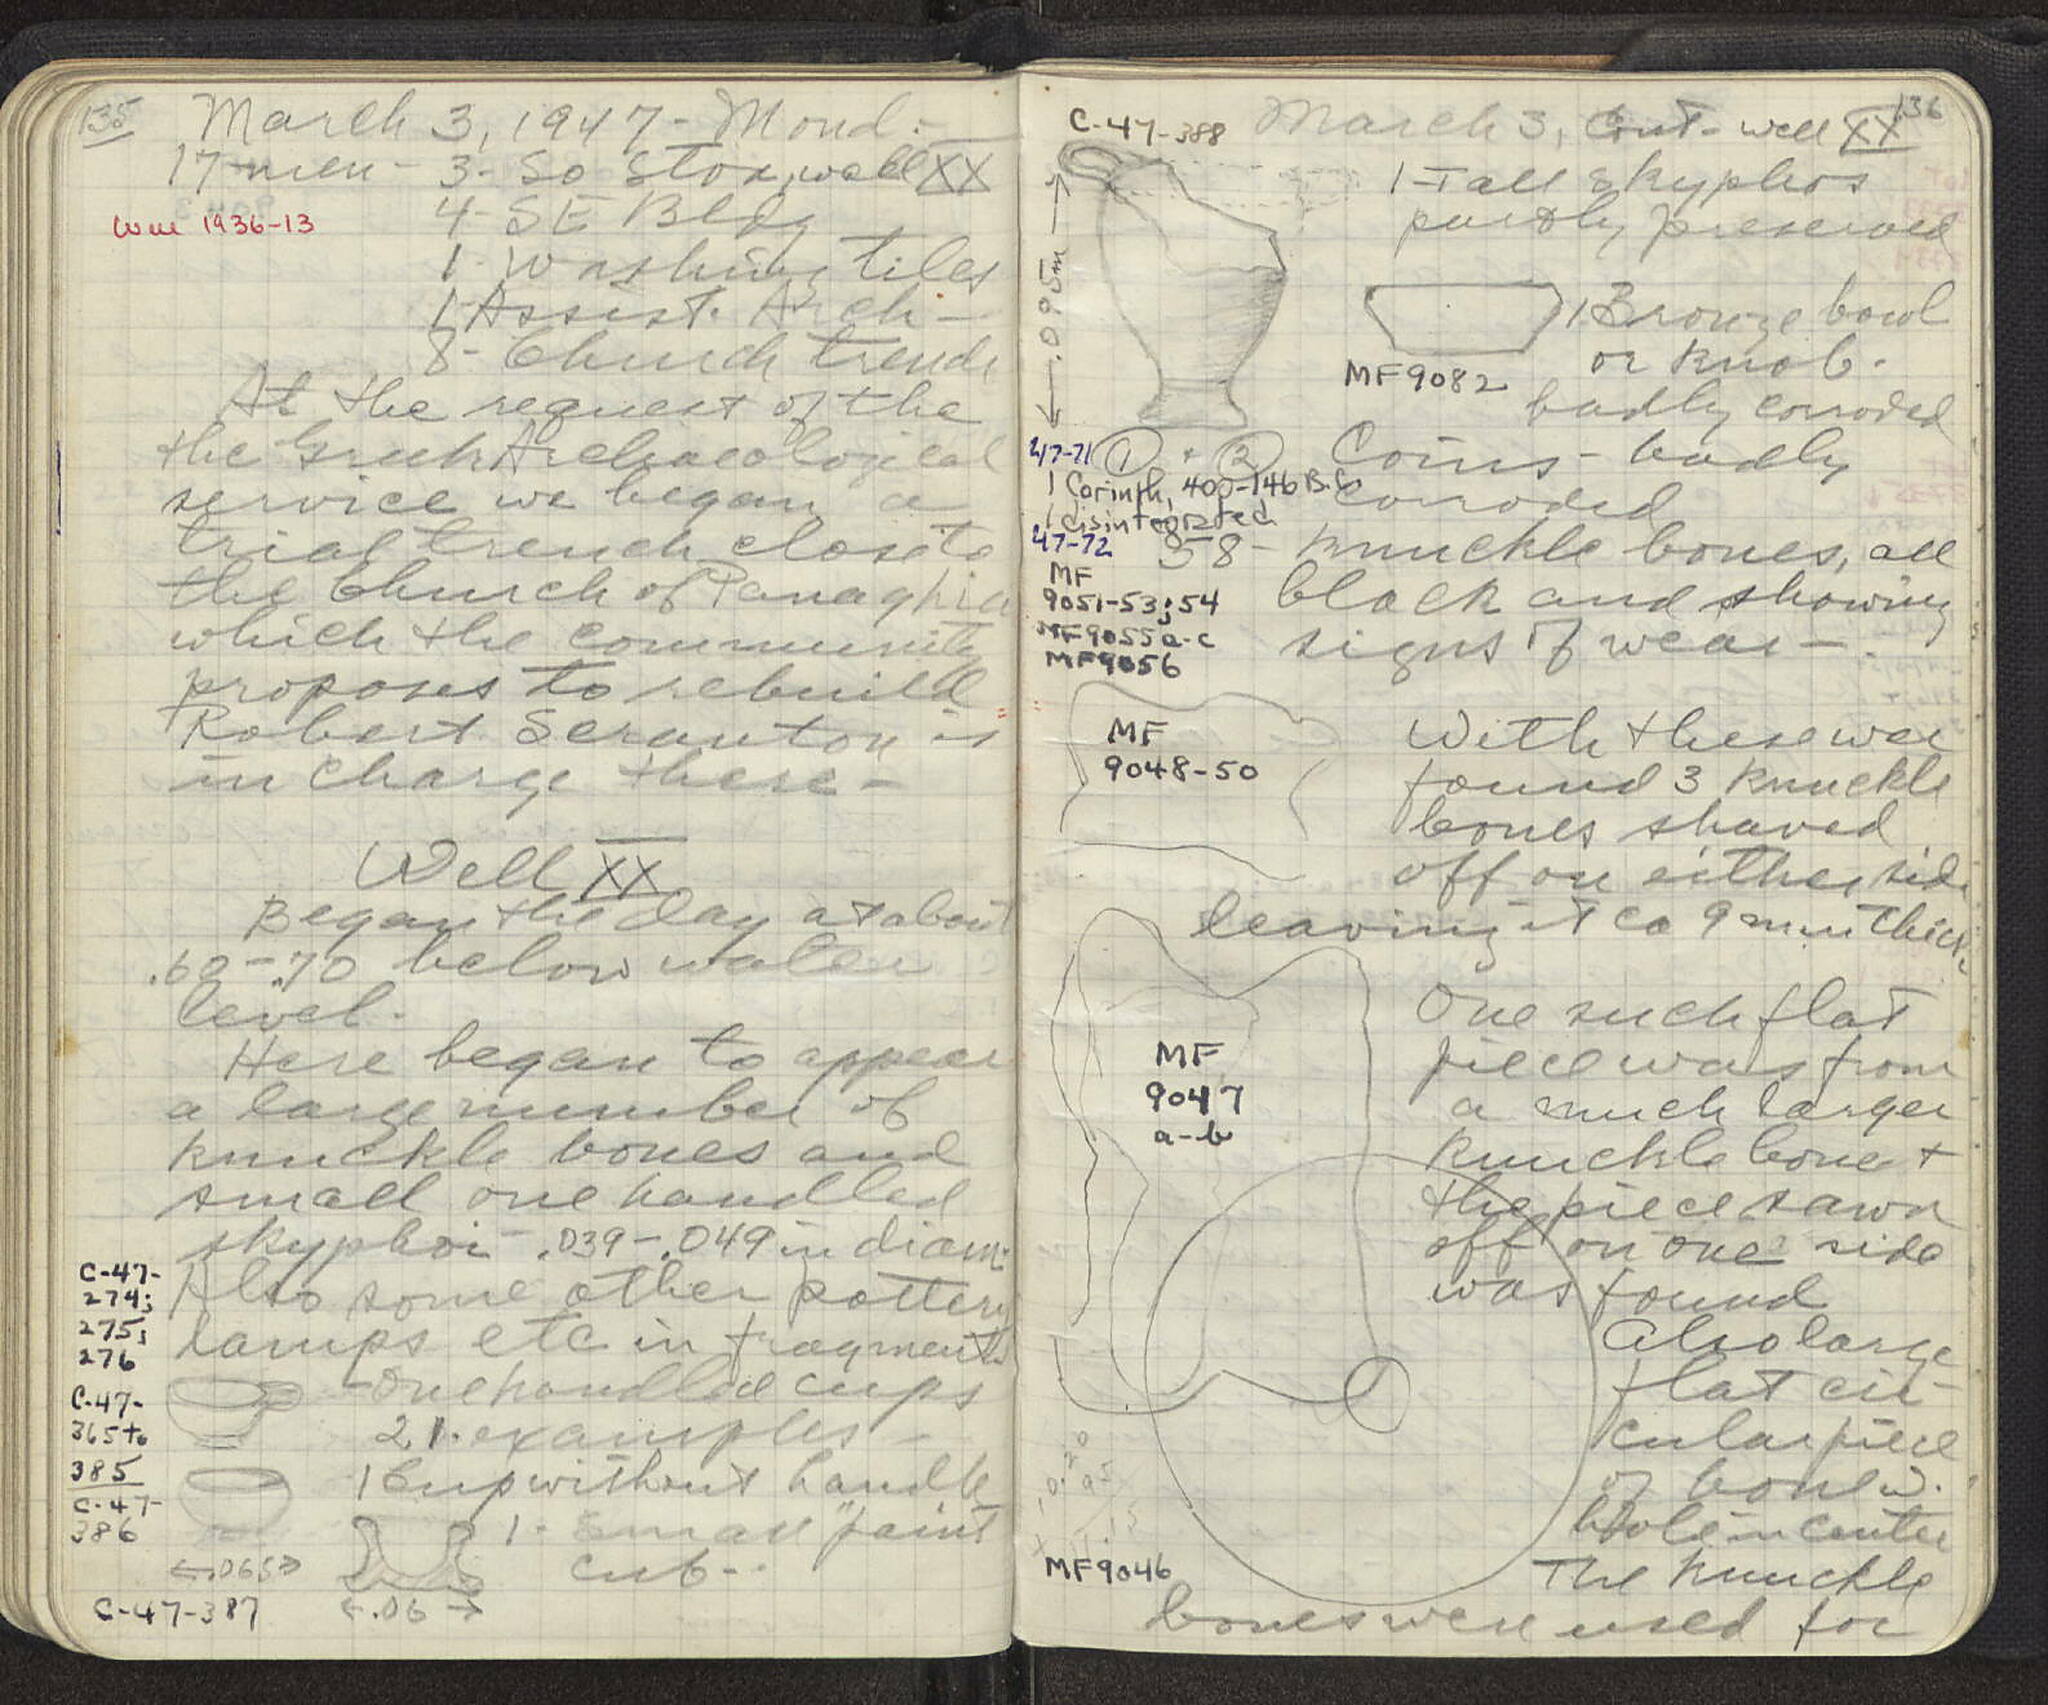 135
March 3, 1947 - Mond.-
17 men - 3 - So Stoa, well XX
Well 1936-13
4 - SE Bldg
1 - Washing tiles
1 Assist. Arch -
8 - Church trench
At the request of the
the Greek Archaeological
service we began a
trial trench close to
the Church of Panaghia
which the community
proposes to rebuild
Robert Scranton is
in charge there -
Well XX
Began the day at about
.60 - .70 below water
level.
Here began to appear
a large number of
knuckle bones and
small one handled
skyphoi - .039 - .049 in diam.
Also some other pottery
lamps etc in fragments
C-47-
274;
275;
276
- One handled cups
21. examples -
C-47-
365 to
385
1 Cup without handle
C-47-
386
1 - small "paint
cub - .
.065
.06
C-47-387
136
C-47-388
March 3, Cont - well XX
1 - Tall skyphos
partly preserved
.095m
1 Bronze bowl
or knob.
badly corroded
MF9082
47-71 1 + 2 Coins - badly
corroded
1 Corinth, 400-146 B.C.
1 disintegrated
47-72
58 - knuckle bones, all
black and showing
signs of wear -
MF
9051-53;54
MF9055a-c
MF9056
MF
9048-50
With these were
found 3 knuckle
bones shaved
off on either side
leaving it ca 9 mm thick.
One such flat
piece was from
a much larger
knuckle bone +
the piece sawn
off on one side
was found
MF
9047
a-b
Also large
flat cir-
cular piece
of bone w.
hole in center
MF9046
The knuckle
bones were used for